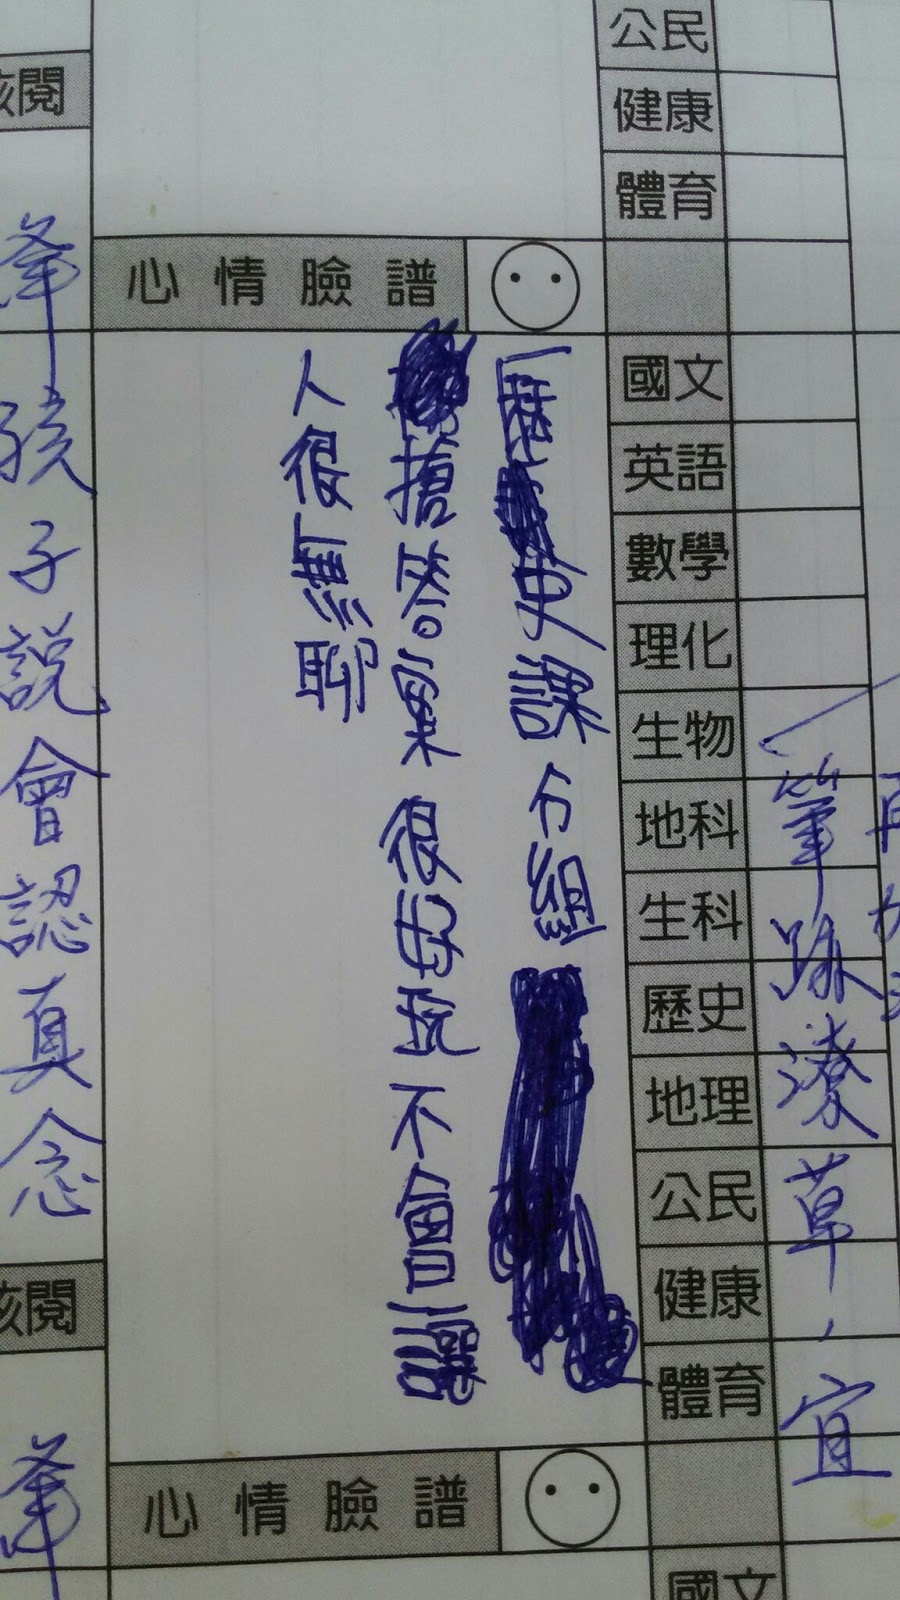 公民
健康
體育
國文
英語
數學
理化
生物
地科
生科
歷史
地理
公民
健康
體育
國文
筆跡潦草,宜
心情臉譜
歷史課分組
搶答案很好玩不會讓
人很無聊
心情臉譜
核閱
孩子說會認真念
核閱